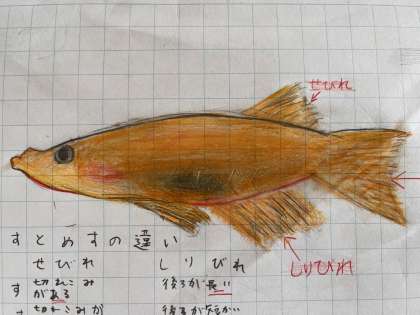 せびれ
しりびれ
すとめすの違い
せびれ しりびれ
す 切れこみがある 後ろが長い
切れこみが 後ろが